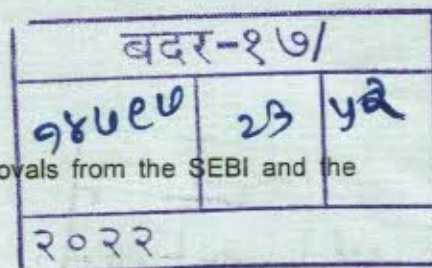 बदर-१७/
१४७९७ २३ ५२
ovals from the SEBI and the
२०२२